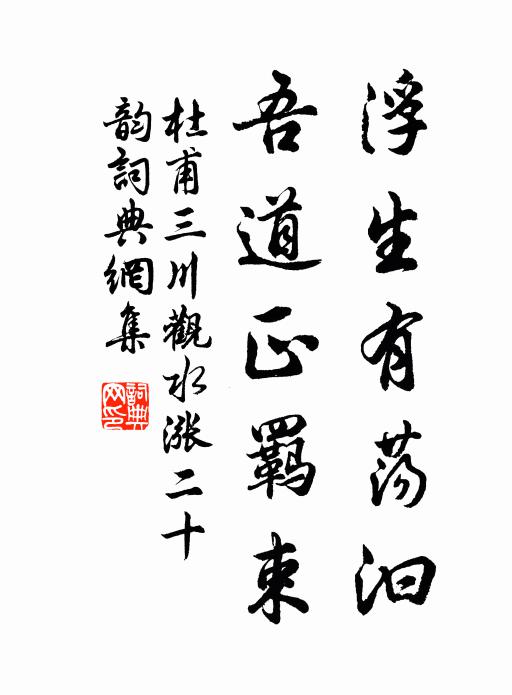 浮生有荡汩
吾道正羁束
杜甫三川觀水漲二十
韵詞典網集
詞典网印